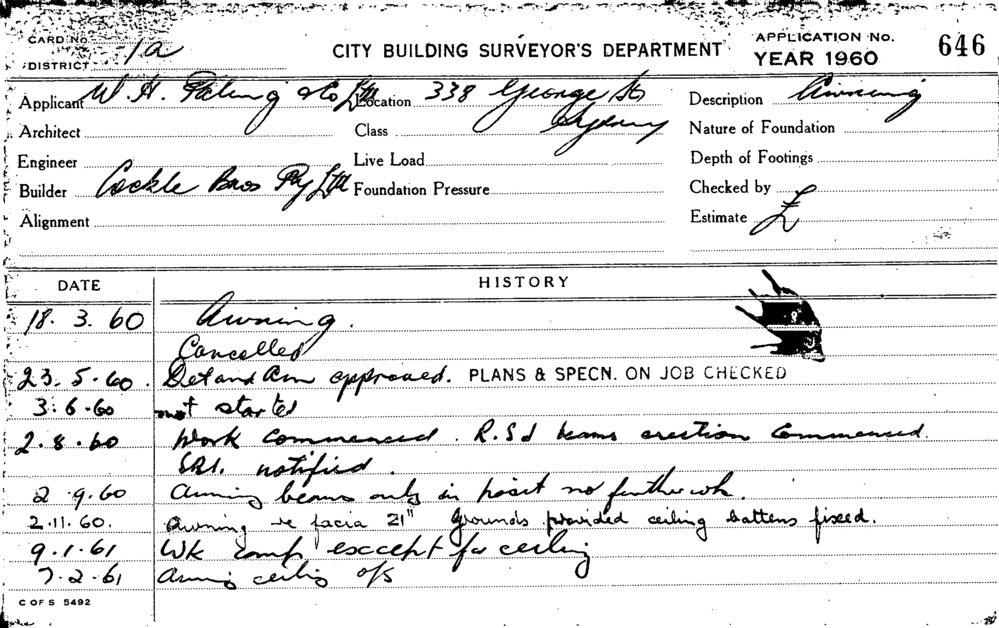 CARD No. 1a
DISTRICT
CITY BUILDING SURVEYOR'S DEPARTMENT
APPLICATION No. 646
YEAR 1960
Applicant W. H. Paling & Co Ltd Location 338 George St Sydney Description Awning
Architect Class Nature of Foundation
Engineer Live Load Depth of Footings
Builder Cockle Bros Pty Ltd Foundation Pressure Checked by
Alignment Estimate £
DATE HISTORY
18. 3. 60 Awning.
Cancelled
23. 5. 60. approved. PLANS & SPECN. ON JOB CHECKED
3. 6. 60 not started
2. 8. 60 Work commenced. R.S.J beams erection commenced.
notified.
2. 9. 60 Awning beams only in posit no further wk.
2. 11. 60. Awning facia 21" Grounds provided ceiling battens fixed.
9. 1. 61 Wk comp exccept for ceiling
7. 2. 61 Awning ceiling o/s
C OF S 5492